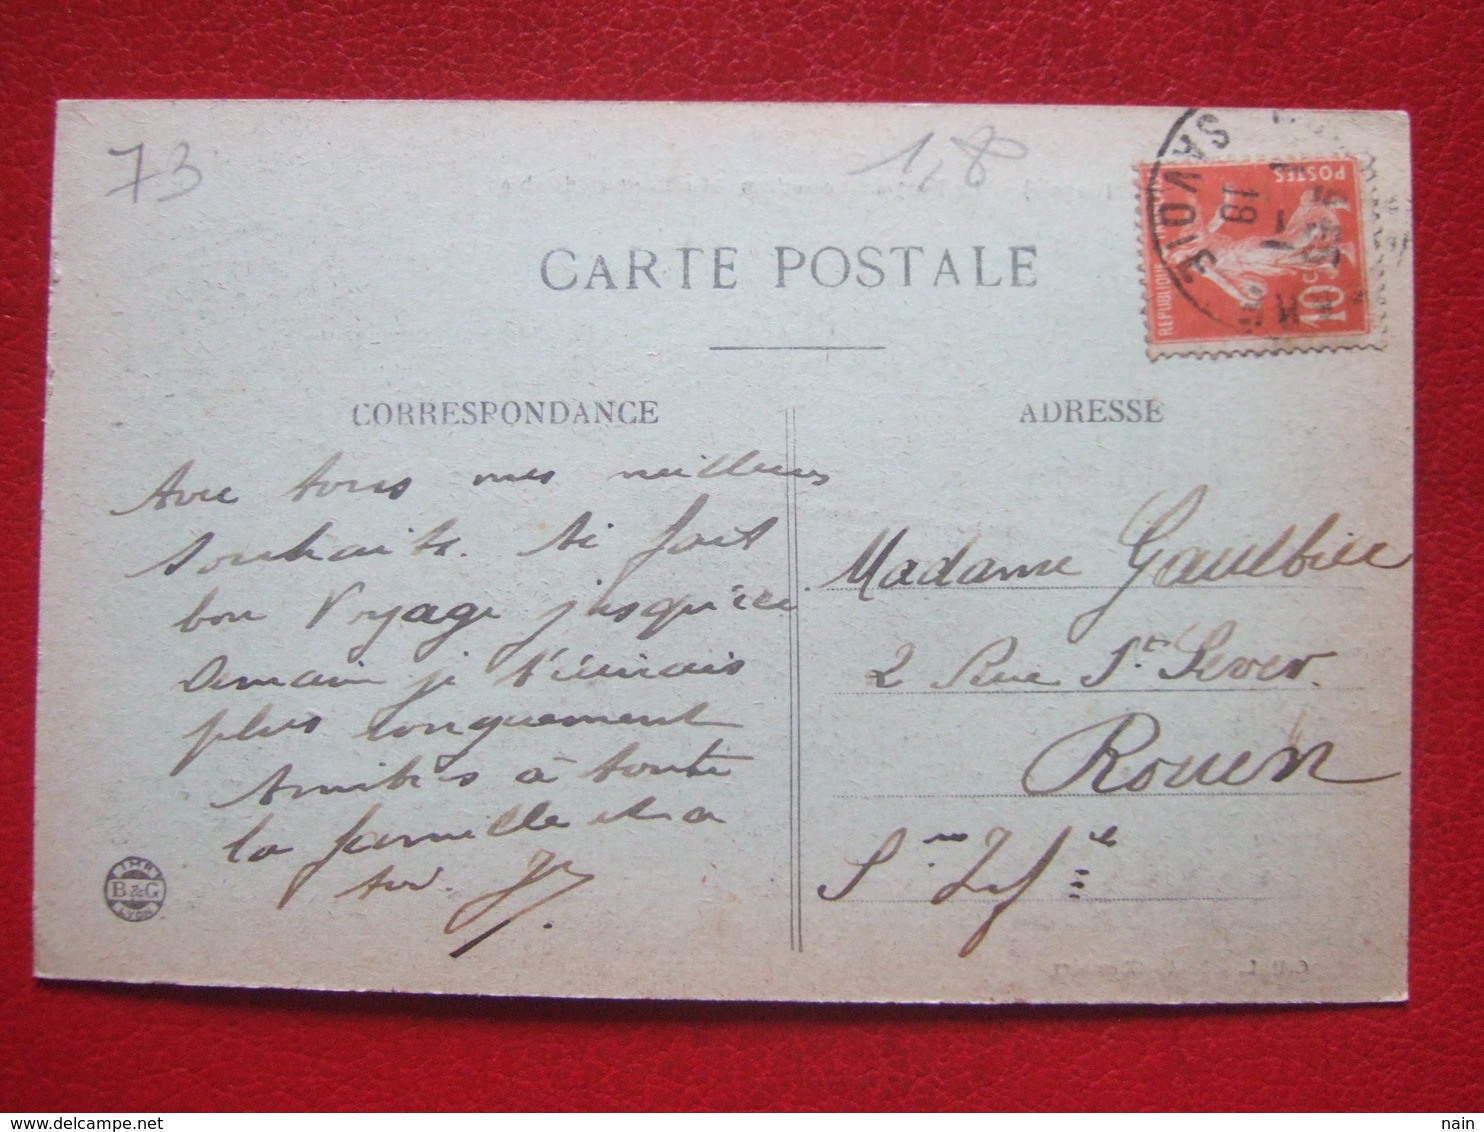 73
1,8
CARTE POSTALE
CORRESPONDANCE
ADRESSE
SAVOIE
18
POSTES
REPUBLIQUE
10c
Avec tous mes meilleurs
souhaits. Ai fait
bon Voyage jusqu'ici
Demain je t'écrirais
plus longuement
Amitiés à toute
la famille et à
toi.
Madame Gaulbier
2 Rue St Sever.
Rouen
S. Infre
IMP.
B & G
LYON